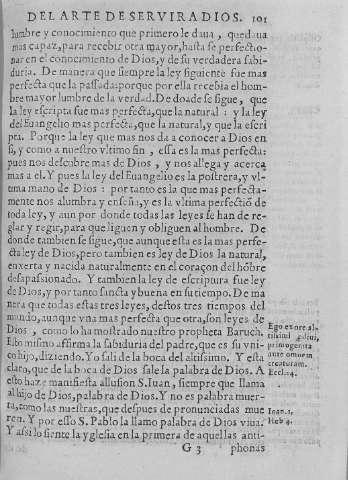 DEL ARTE DE SERVIR A DIOS. 101
lumbre y conocimiento que primero le daua, quedaua
mas capaz, para recebir otra mayor, hasta se perfectio-
nar en el conocimiento de Dios, y de su verdadera sabi-
duria. De manera que siempre la ley siguiente fue mas
perfecta que la passada: porque por ella recebia el hom-
bre mayor lumbre de la verdad. De donde se sigue, que
la ley escripta fue mas perfecta, que la natural: y la ley
del Euangelio mas perfecta, que la natural, y que la escri
pta. Porque la ley que mas nos da a conocer a Dios en
si, y como a nuestro vltimo fin, essa es la mas perfecta:
pues nos descubre mas de Dios, y nos allega y acerca
mas a el. Y pues la ley del Euangelio es la postrera, y vl-
tima mano de Dios: por tanto es la que mas perfecta-
mente nos alumbra y enseña, y es la vltima perfectiõ de
toda ley, y aun por donde todas las leyes se han de re-
glar y regir, para que liguen y obliguen al hombre. De
donde tambien se sigue, que aunque esta es la mas perfe-
cta ley de Dios, pero tambien es ley de Dios la natural,
enxerta y nacida naturalmente en el coraçon del hõbre
desapassionado. Y tambien la ley de escriptura fue ley
de Dios, y por tanto sancta y buena en su tiempo. De ma
nera que todas estas tres leyes, destos tres tiempos del
mundo, aunque vna mas perfecta que otra, son leyes de
Dios, como lo ha mostrado nuestro propheta Baruch.
Esto mismo affirma la sabiduria del padre, que es su vni-
co hijo, diziendo. Yo sali de la boca del altissimo. Y esta
claro, que de la boca de Dios sale la palabra de Dios. A
esto haze manifiesta allusion S. Iuan, siempre que llama
al hijo de Dios, palabra de Dios. Y no es palabra muer-
ta, como las nuestras, que despues de pronunciadas mue
ren. Y por esso S. Pablo la llamo palabra de Dios viua.
Y assi lo siente la yglesia en la primera de aquellas anti-
G 3 phonas
Ego ex ore al-
tissimi
primogenita
ante omnem
creaturam.
Eccl. 24.
Ioan. 1.
Heb 4.